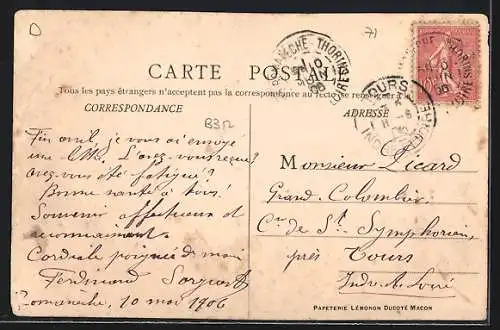 D
71
CARTE POSTALE
Tous les pays étrangers n'acceptent pas la correspondance au recto (se renseigner à
CORRESPONDANCE
ADRESSE
B3P
ROMANÈCHE-THORINS
TOURS
INDRE-ET-LOIRE
Fin avril, je vous ai envoyé
une . L'avez-vous reçue?
avez-vous été fatigué?
Bonne santé à tous!
Souvenir affectueux et
reconnaissant
Cordiale poignée de main
Ferdinand
Romanèche, 10 mai 1906
Monsieur Picard
Grand Colombier
Cne de St Symphorien
près Tours
Indre & Loire
PAPETERIE LÉMONON DUCOTÉ MACON